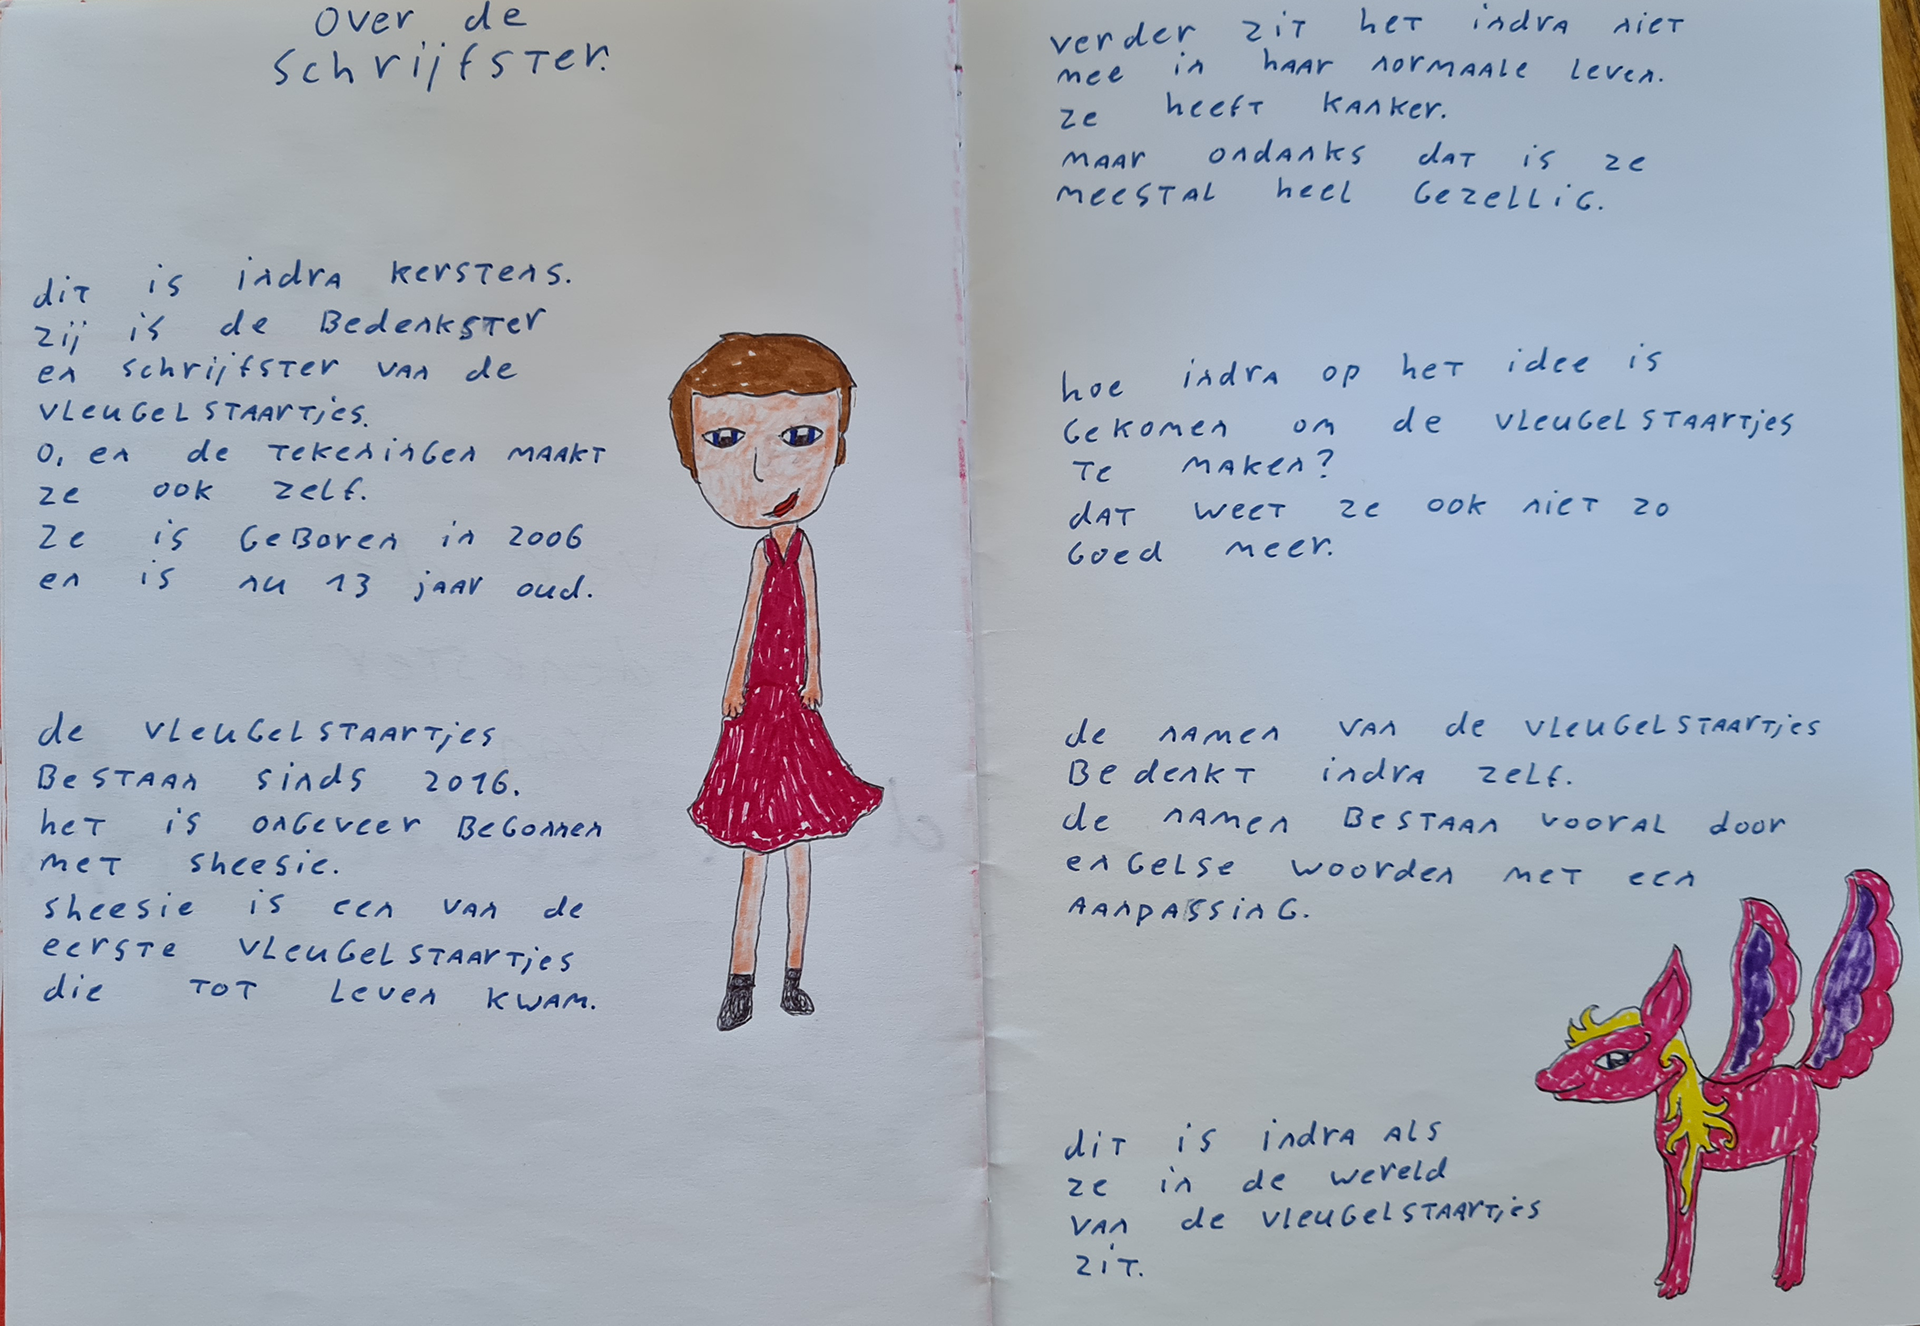 over de
schrijfster.
dit is indra kerstens.
zij is de Bedenkster
en schrijfster van de
vleugelstaartjes.
o, en de tekeningen maakt
ze ook zelf.
ze is geboren in 2006
en is nu 13 jaar oud.
de vleugelstaartjes
Bestaan sinds 2016.
het is ongeveer Begonnen
met sheesie.
sheesie is een van de
eerste vleugelstaartjes
die tot leven kwam.
verder zit het indra niet
mee in haar normaale leven.
ze heeft kanker.
maar ondanks dat is ze
meestal heel gezellig.
hoe indra op het idee is
gekomen om de vleugelstaartjes
te maken?
dat weet ze ook niet zo
goed meer.
de namen van de vleugelstaartjes
Bedenkt indra zelf.
de namen Bestaan vooral door
engelse woorden met een
aanpassing.
dit is indra als
ze in de wereld
van de vleugelstaartjes
zit.